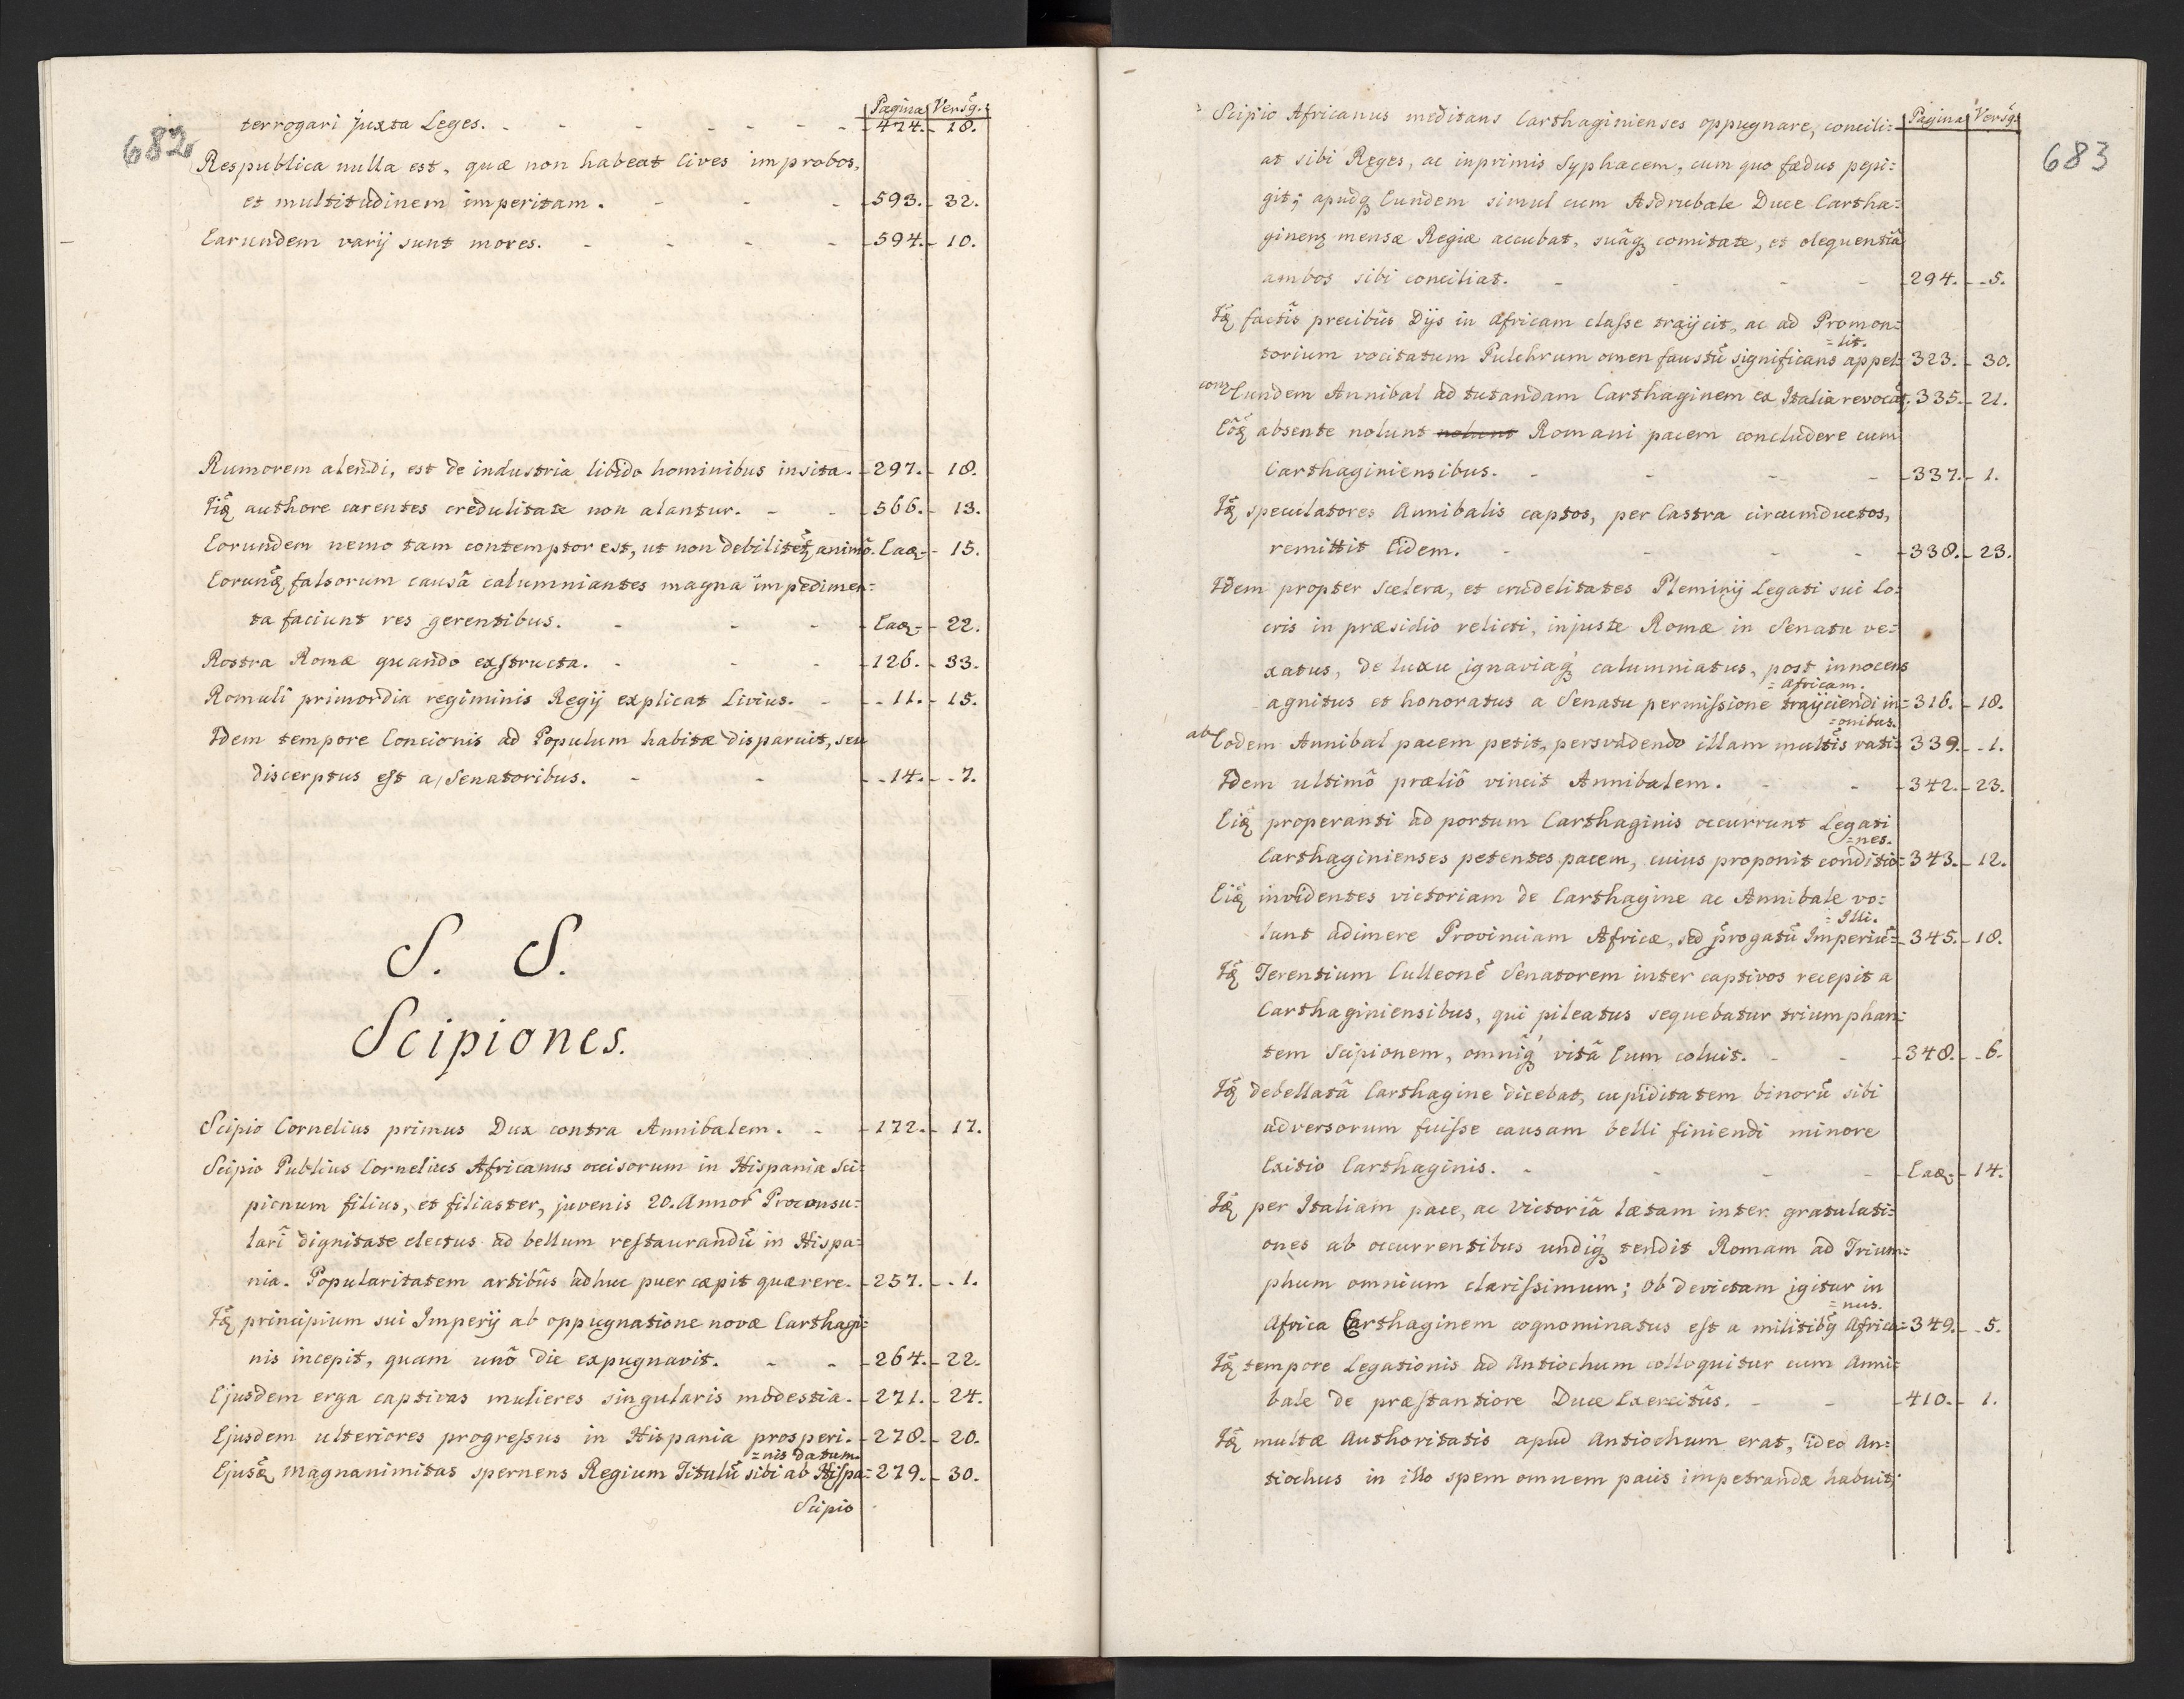 682
Pagina Versq.
terrogari juxta Leges. - 424. - 18.
Respublica nulla est, quæ non habeat Cives improbos,
et multitudinem imperitam. - 593. - 32.
Earundem varij sunt mores. - 594. - 10.
Rumorem alendi, est de industria libido hominibus insita. - 297. - 18.
Iiq authore carentes credulitate non alantur. - 566. - 13.
Eorundem nemo tam contemptor est, ut non debilitetq animo. Eaq - 15.
Eorunq falsorum causâ calumniantes magna impedimen=
ta faciunt res gerentibus. - Eaq - 22.
Rostra Romæ quando exstructa. - 126. - 33.
Romuli primordia regiminis Regij explicat Livius. - 11. - 15.
Idem tempore Concionis ad Populum habitæ disparuit, seu
discerptus est a Senatoribus. - 14. - 7.
S. S.
Scipiones.
Scipio Cornelius primus Dux contra Annibalem. - 172. - 17.
Scipio Publius Cornelius Africanus occisorum in Hispania Sci=
pionum filius, et filiaster, juvenis 20. Annor Proconsu=
lari dignitate electus ad bellum restaurandū in Hispa=
nia. Popularitatem artibûs adhuc puer cæpit quærere. - 257. - 1.
Iq principium sui Imperij ab oppugnatione novæ Carthagi=
nis incepit, quam unô die expugnavit. - 264. - 22.
Ejusdem erga captivas mulieres singularis modestia. - 271. - 24.
Ejusdem ulteriores progressus in Hispania prosperi. - 278. - 20.
=nis datum.
Ejusq magnanimitas spernens Regium Titulū sibi ab Hispa= 279. - 30.
Scipio
683
Pagina Versq.
Scipio Africanus meditans Carthaginienses oppugnare, concili=
at sibi Reges, ac inprimis Syphacem, cum quo fœdus pepi=
git; apudq Eundem simul cum Asdrubale Duce Cartha=
ginenq mensæ Regiæ accubat, suâq comitate, et olequentiâ
ambos sibi conciliat. - 294. - 5.
Iq factis precibûs Dijs in Africam classe traijcit, ac ad Promon=
=lit.
torium vocitatum Pulchrum omen faustū significans appel= 323. - 30.
conz Eundem Annibal ad tutandam Carthaginem ex Italia revocat. 335. - 21.
Eôq absente nolunt nolunt Romani pacem concludere cum
Carthaginiensibus. - 337. - 1.
Iq speculatores Annibalis captos, per Castra circumductos,
remittit Eidem. - 338. - 23.
Idem propter scelera, et crudelitates Pleminij Legati sui Lo=
cris in præsidio relicti, injuste Romæ in Senatu ve=
xatus, de luxu ignaviaq calumniatus, post innocens
= Africam.
agnitus et honoratus a Senatu permissione traijciendi in= 316. - 18.
=onibus.
ab Eodem Annibal pacem petit, persvadendo illam multis rati= 339. - 1.
Idem ultimô præliô vincit Annibalem. - 342. - 23.
Eiq properanti ad portum Carthaginis occurrunt Legati
=nes.
Carthaginienses petentes pacem, cuius proponit conditio= 343. - 12.
Eiq invidentes victoriam de Carthagine ac Annibale vo=
= Illi.
lunt adimere Provinciam Africæ, sed progatū Imperiū= 345. - 18.
Iq Terentium Culleonē Senatorem inter captivos recepit a
Carthaginiensibus, qui pileatus sequebatur triumphan=
tem Scipionem, omniq vitâ Eum coluit. - 348. - 6.
Iq debellatâ Carthagine dicebat, cupiditatem binorū sibi
adversorum fuisse causam belli finiendi minore
Exitio Carthaginis. - Eaq - 14.
Iq per Italiam pace, ac Victoriâ lætam inter gratulati=
ones ab occurrentibus undiq tendit Romam ad Trium=
phum omnium clarissimum; Ob devictam igitur in
= nus.
Africa Carthaginem cognominatus est a militibq Africa= 349. - 5.
Iq tempore Legationis ad Antiochum colloquitur cum Anni=
bale de præstantiore Duce Exercitûs. - 410. - 1.
Iq multæ Authoritatis apud Antiochum erat, ideo An=
tiochus in illo spem omnem pacis impetrandæ habuit;